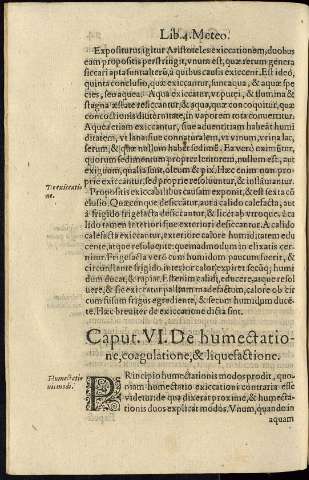 Lib. 4. Meteo.
Expositurus igitur Aristoteles exiccationem, duobus
eam propositis perstringit, vnum est, quæ rerum genera
siccari apta sunt alterũ, a quibus causis exiccent. Est ideo,
quinta conclusio, quæ exiccantur, sunt aqua, & aquæ spe
cies, seu aquea. Aqua exiccatur, vt putei, & flumina &
stagna æstate resiccantur, & aqua, quæ concoquitur, quæ
concoctionis diuturnitate, in vaporem tota conuertitur.
Aquea etiam exiccantur, siue aduentitiam habeãt humi
ditatem, vt lana siue congenitalem, vt vinum, vrina lac,
serum, & quæ nullum habet sedimẽ. Ea verò eximũtur,
quorum sedimentum propter lentorem, nullum est, aut
exiguum, qualia sunt, oleum & pix. Hæc enim non pro
prie exiccantur, sed proprie resoluuntur, & inflãmantur.
Propositis exiccabilibus causam exponit, & est sexta cõ
clusio. Quæcunque desiccãtur, aut a calido calefacta, aut
à frigido frigefacta desiccantur, & licet ab vtroque, à ca
lido tamen interiori siue exteriori desiccantur. A calido
calefacta exiccantur, exteriore calore humiditatem edu
cente, atque resoluente: quemadmodum in elixatis cer-
nimus. Frigefacta verò cum humidum paucum fuerit, &
circunstante frigido, interior calor expiret secũq; humi
dum ducat, & rapiat. Est enim calidi, educere, atque resol
uere, & sic exiccatur pallium madefactum, calore ob cir
cum fusum frigus egrediente, & secum humidum ducẽ-
te. Hæc breuiter de exiccatione dicta sint.
De exiccatio
ne.
Caput. VI. De humectatio-
ne, coagulatione, & liquefactione.
Humectatio
nis modi.
PRincipio humectationis modos prodit, quo-
niam humectatio exiccationi contraria esse
videtur de qua dixerat proximè, & humecta-
tionis duos explicat modos. Vnum, quando in
aquam